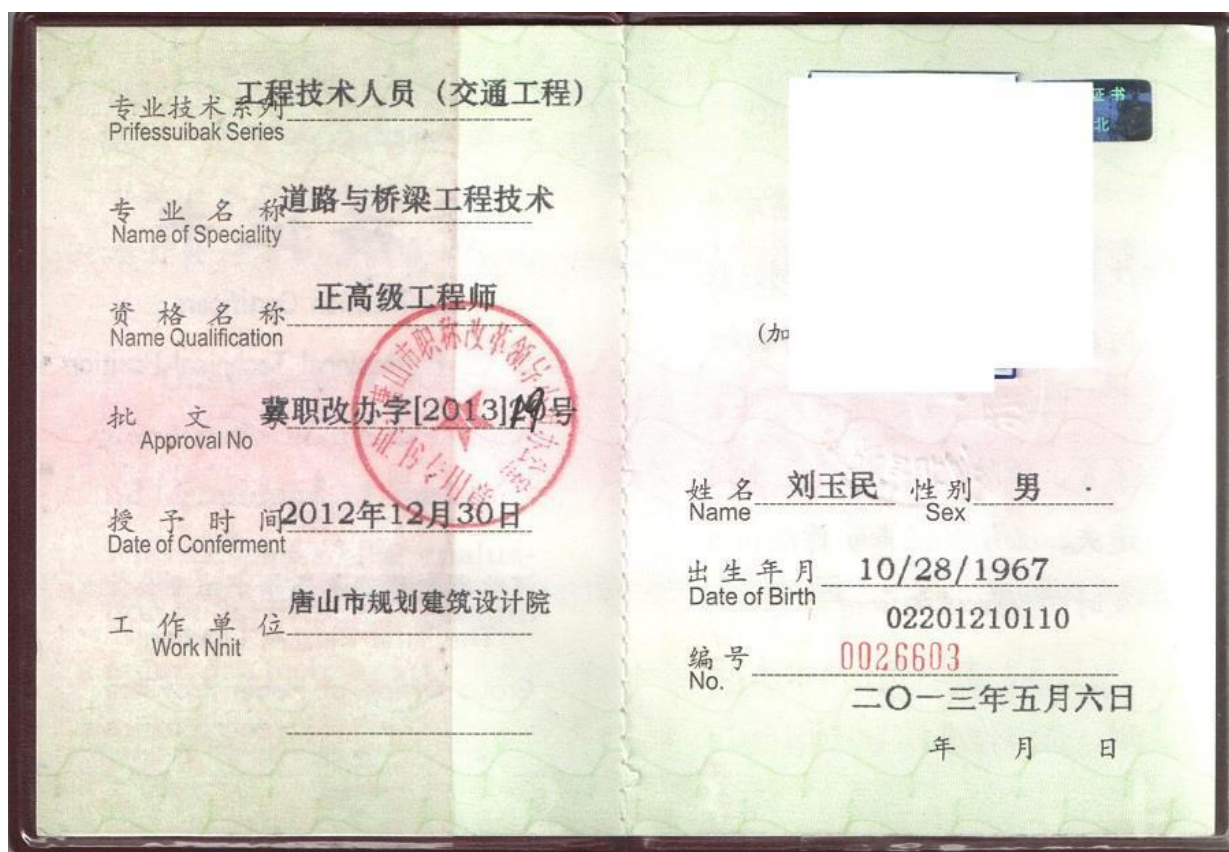 专业技术系列 工程技术人员（交通工程）
Prifessuibak Series
专业名称 道路与桥梁工程技术
Name of Speciality
资格名称 正高级工程师
Name Qualification
批文 冀职改办字[2013]19号
Approval No
授予时间 2012年12月30日
Date of Conferment
工作单位 唐山市规划建筑设计院
Work Nnit
唐山市职称改革领导
证书专用章
证书
北
(加
姓名 刘玉民 性别 男
Name Sex
出生年月 10/28/1967
Date of Birth
02201210110
编号 0026603
No.
二〇一三年五月六日
年 月 日